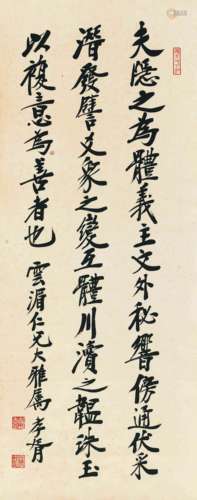 夫隱之為體義主文外秘響傍通伏采
潛發譬爻象之變互體川瀆之韞珠玉
以複意為善者也 雲湄仁兄大雅屬 孝胥